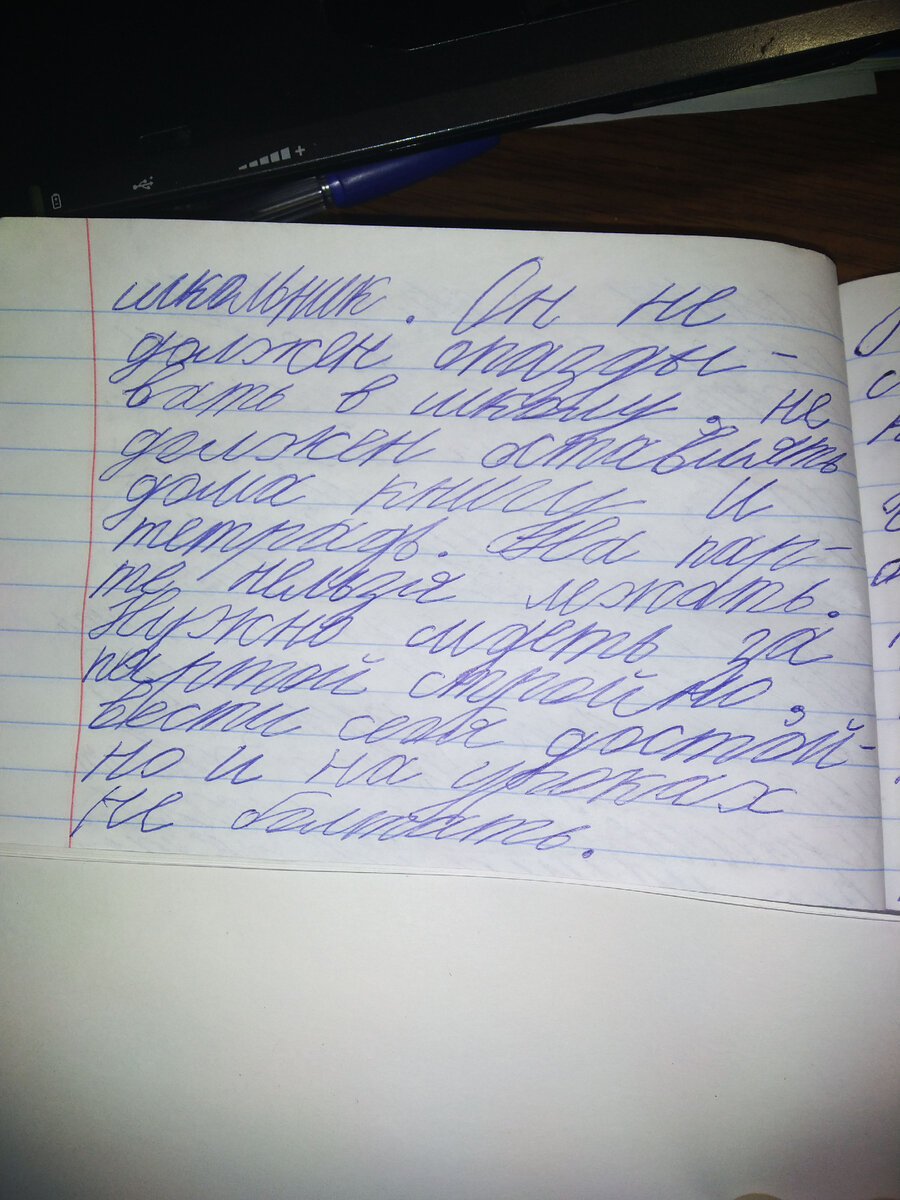 школьник. Он не
должен опазды-
вать в школу, не
должен оставлять
дома книгу и
тетрадь. На пар-
те нельзя лежать.
Нужно сидеть за
партой стройно,
вести себя достой-
но и на уроках
не болтать.